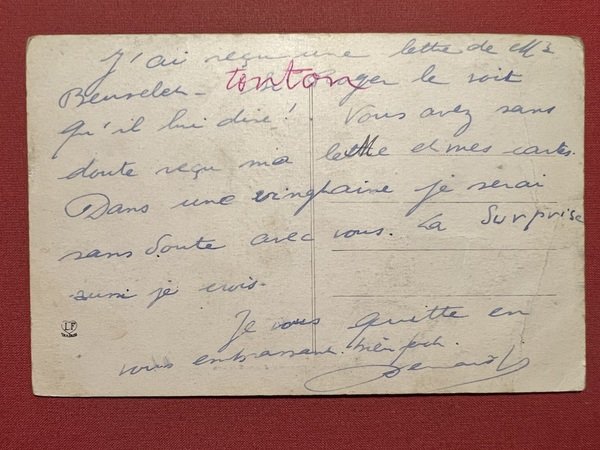 J'ai reçu une lettre de Mr
Beuseler - tonton le soit
qu'il lui dise! Vous avez sans
doute reçu ma lettre et mes cartes.
Dans une vingtaine je serai
sans doute avec vous. La Surprise
aussi je crois.
Je vous quitte en
vous embrassant bien fort.
LF